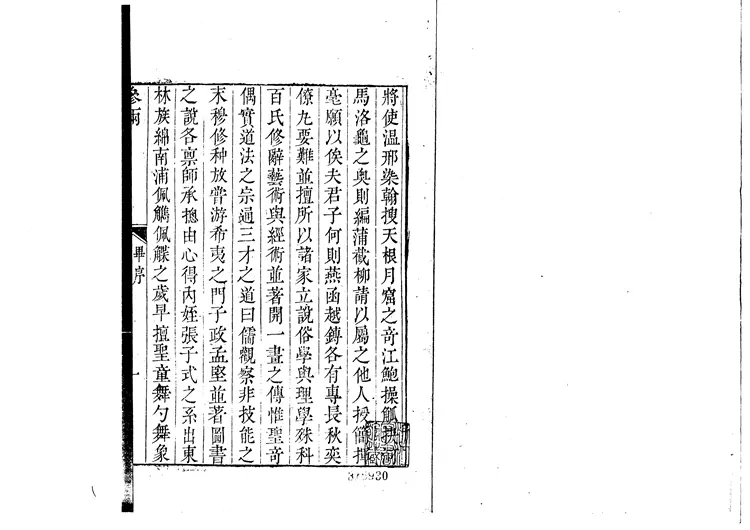 將使溫邢染翰搜天根月窟之奇江鮑操觚抉
馬洛龜之奧則編蒲截柳請以屬之他人授簡揮
毫願以俟夫君子何則燕函越鏄各有專長秋奕
僚九要難並擅所以諸家立說俗學與理學殊科
百氏修辭藝術與經術並著開一畫之傳惟聖奇
偶實道法之宗過三才之道曰儒觀察非技能之
末穆修种放嘗游希夷之門子政孟堅並著圖書
之說各稟師承摠由心得內姪張子式之系出東
林族綿南浦佩觿佩韘之歲早擅聖童舞勺舞象
參兩
畢序
一
378930